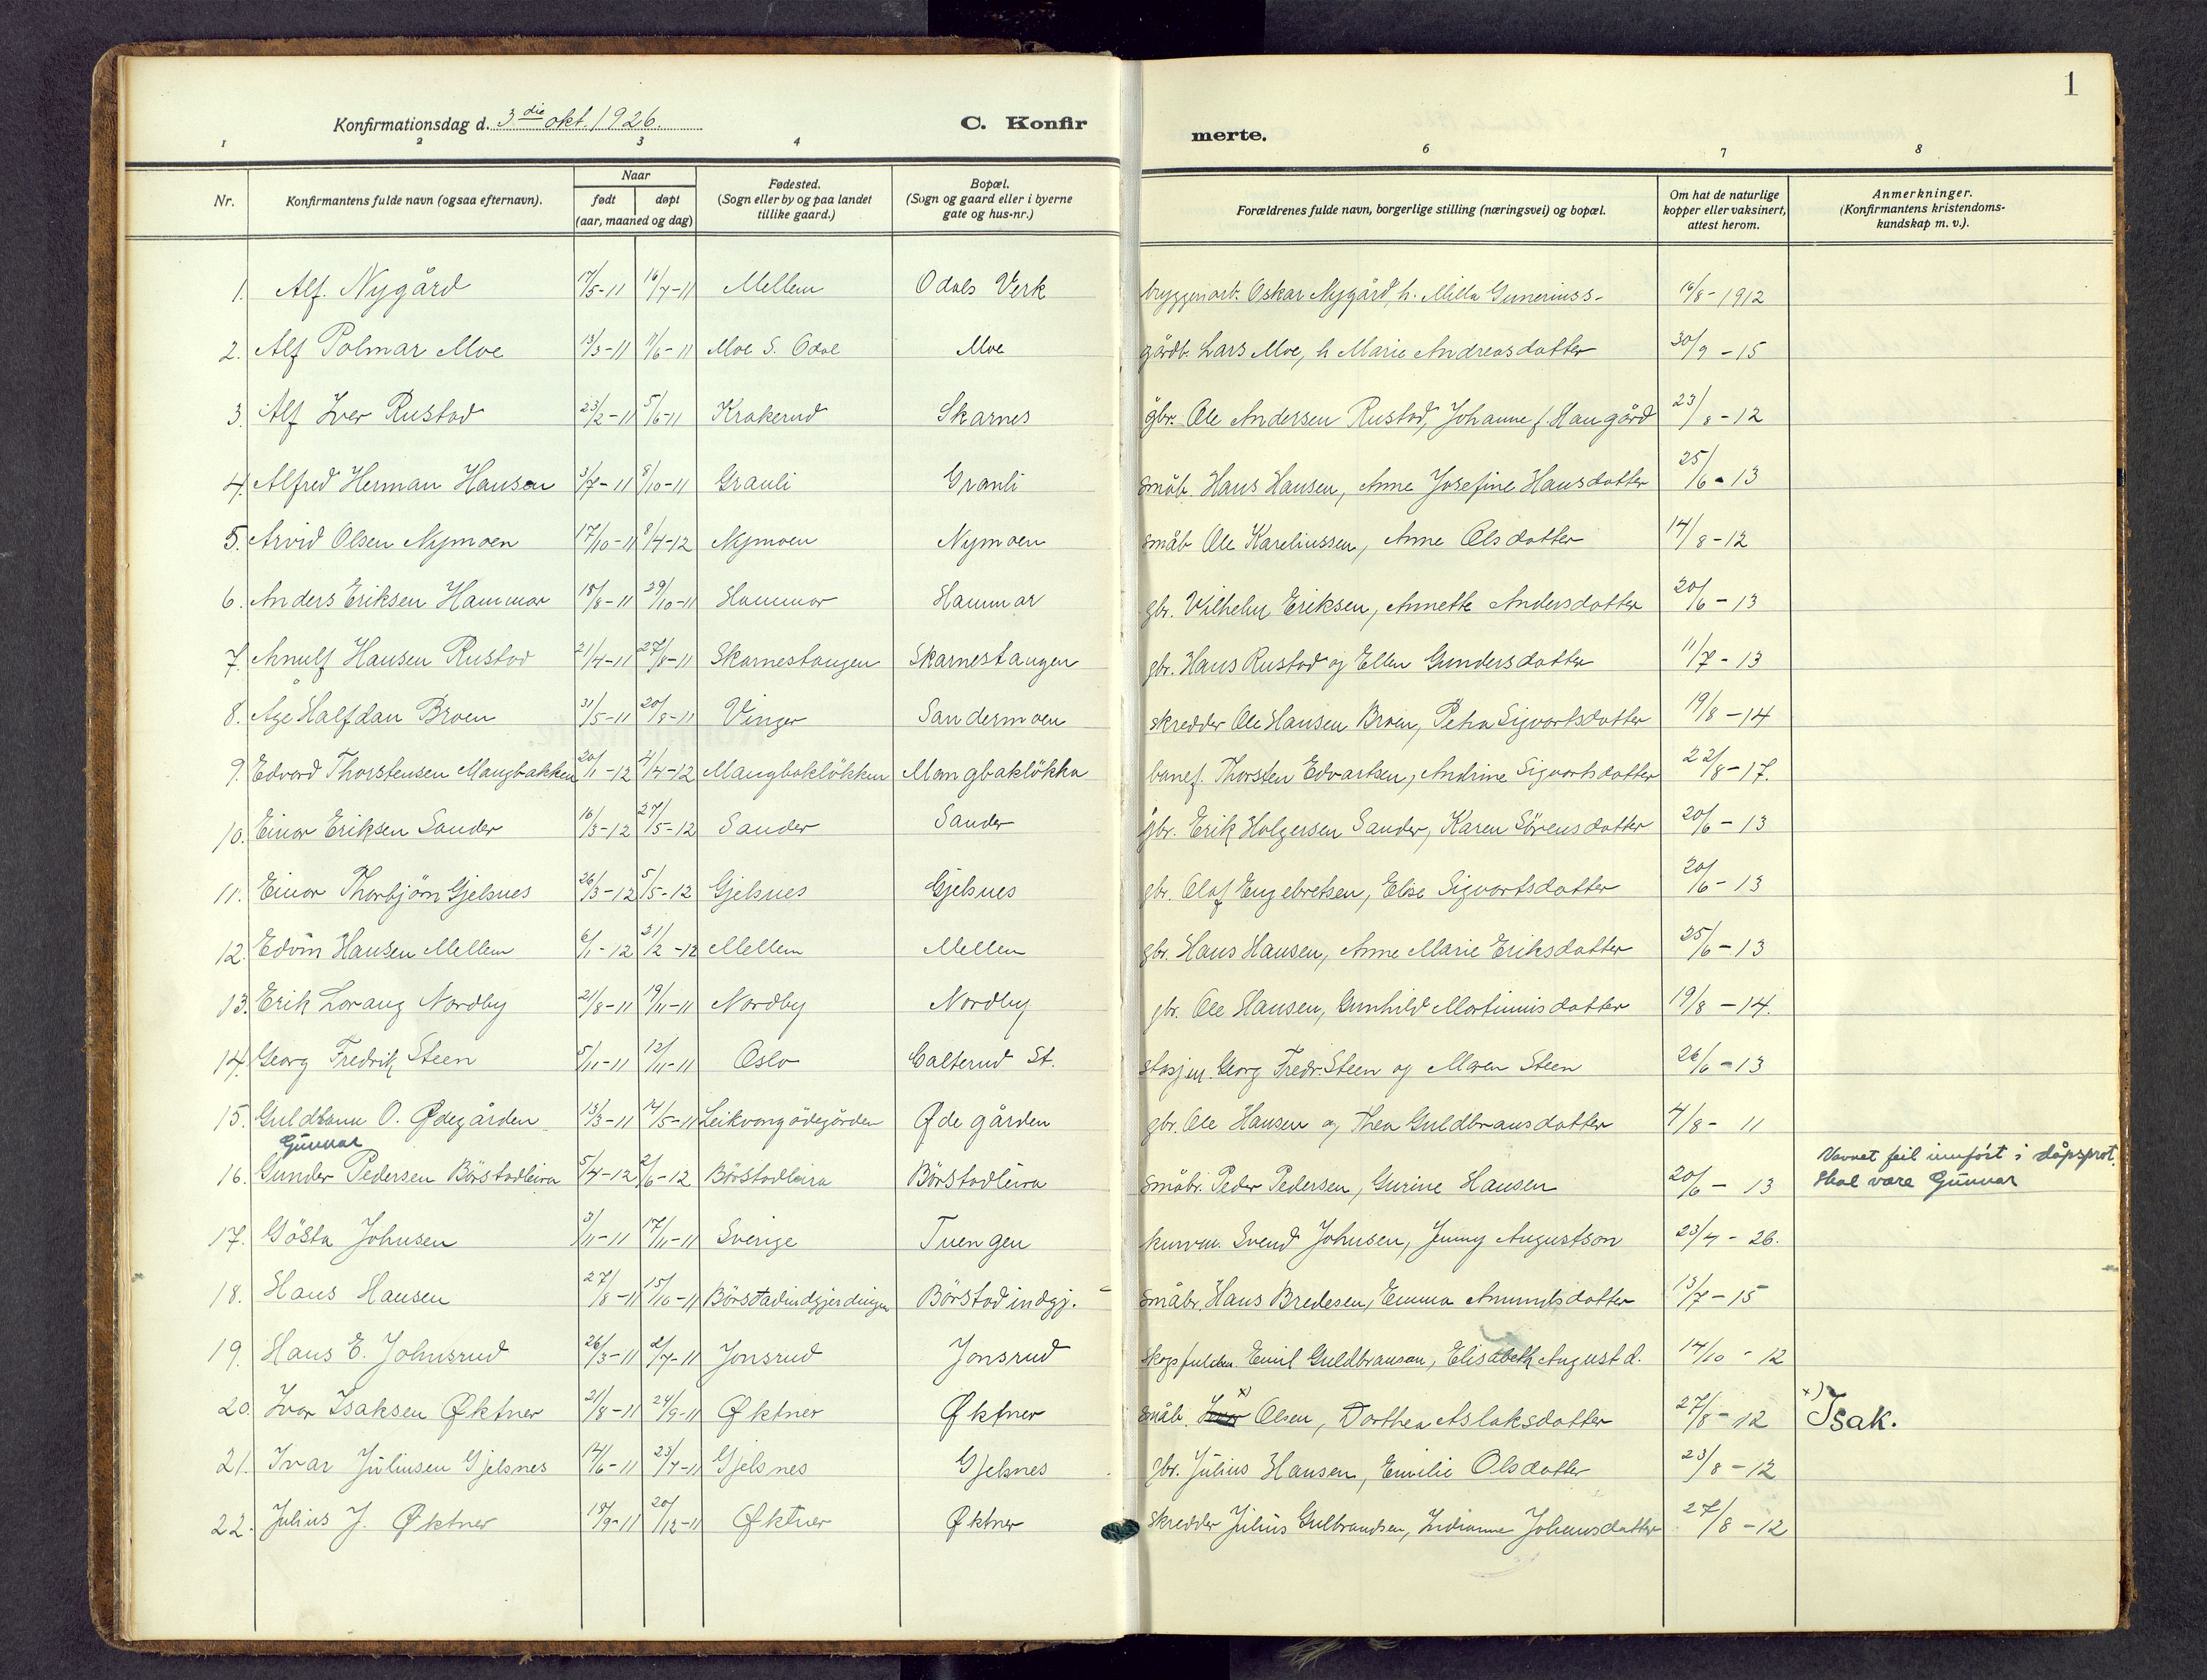 1
Konfirmationsdag d. 3die okt. 1926. C. Konfirmerte.
1 2 3 4 6 7 8
Nr. Konfirmantens fulde navn (ogsaa efternavn). Naar født døpt (aar, maaned og dag) Fødested. (Sogn eller by og paa landet tillike gaard.) Bopæl. (Sogn og gaard eller i byerne gate og hus-nr.) Forældrenes fulde navn, borgerlige stilling (næringsvei) og bopæl. Om hat de naturlige kopper eller vaksinert, attest herom. Anmerkninger. (Konfirmantens kristendomskundskap m. v.).
1. Alf. Nygård 17/5-11 16/7-11 Mellem Odals Verk Oskar Nygård, h. Milla 16/8-1912
2. Alf Polmar Moe 13/3-11 11/6-11 Moe S. Odal Moe gårdb. Lars Moe, h Marie Andreasdatter 30/9-15
3. Alf Iver Rustad 23/2-11 5/6-11 Krakerud Skarnes gbr. Ole Andersen Rustad, Johanne f. Haugård 23/8-12
4. Alfred Herman Hansen 3/7-11 8/10-11 Granli Granli småb. Hans Hansen, Anne Josefine Hansdatter 25/6-13
5. Arvid Olsen Nymoen 17/10-11 8/4-12 Nymoen Nymoen småb Ole Kareliussen, Anne Olsdatter 14/8-12
6. Anders Eriksen Hammar 18/8-11 29/10-11 Hammar Hammar gbr. Vilhelm Eriksen, Annette Andersdatter 20/6-13
7. Arnulf Hansen Rustad 21/4-11 27/8-11 Skarnestangen Skarnestangen gbr. Hans Rustad og Ellen Gundersdatter 11/7-13
8. Åge Halfdan Broen 31/5-11 20/8-11 Vinger Sandermoen skredder Ole Hansen Broen, Petra Sigvartsdatter 19/8-14
9. Edvard Thorstensen Mangbakken 20/1-12 4/4-12 Mangbakløkken Mangbakløkka banef. Thorsten Edvartsen, Andrine Sigvartsdatter 22/8-17.
10. Einar Eriksen Sander 16/3-12 27/5-12 Sander Sander gbr. Erik Holgersen Sander, Karen Sörensdatter 20/6-13
11. Einar Thorbjörn Gjelsnes 26/3-12 5/5-12 Gjelsnes Gjelsnes gbr. Olaf Engebretsen, Elise Sigvartsdatter 20/6-13
12. Edvin Hansen Mellem 6/1-12 /2-12 Mellem Mellem gbr. Hans Hansen, Anne Marie Eriksdatter 25/6-13
13. Erik Lorang Nordby 21/8-11 19/11-11 Nordby Nordby gbr. Ole Hansen, Gunhild Martinusdatter 19/8-14.
14. Georg Fredrik Steen 5/11-11 12/11-11 Oslo Galterud St. stasjm. Georg Fredr. Steen og Maren Steen 26/6-13
15. Guldbran O. Ødegården 13/3-11 14/5-11 Leikvangödegården Ødegården gbr. Ole Hansen og Thea Guldbransdatter 4/8-11
Gunnar
16. Gunder Pedersen Börstadleira 5/4-12 2/6-12 Börstadleira Börstadleira småbr. Peder Pedersen, Gurine Hansen 20/6-13 Navnet feil innført i dåpsprot. Skal være Gunnar
17. Gösta Johnsen 3/11-11 17/11-11 Sverige Tuengen kurvm. Svend Johnsen, Jenny Augustson 23/4-26.
18. Hans Hansen 27/8-11 15/10-11 Börstadindgjerdingen Börstadindgj. småbr. Hans Bredesen, Emma Amundsdatter 13/7-15
19. Hans E. Johnsrud 26/3-11 2/7-11 Jonsrud Jonsrud Emil Guldbransen, Elisabeth August d. 14/10-12
20. Ivar Isaksen Øktner 21/8-11 24/9-11 Øktner Øktner småb. Ivar x) Olsen, Dorthea Aslaksdatter 27/8-12 x) Isak.
21. Ivar Juliusen Gjelsnes 14/6-11 23/7-11 Gjelsnes Gjelsnes gbr. Julius Hansen, Emilie Olsdatter 23/8-12
22. Julius J. Øktner 18/9-11 20/12-11 Øktner Øktner skredder Julius Gulbrandsen, Indianne Johansdatter 27/8-12